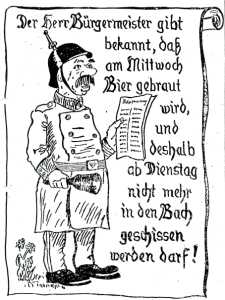 Der Herr Bürgermeister gibt
bekannt, daß
am Mittwoch
Bier gebraut
wird,
und
deshalb
ab Dienstag
nicht mehr
in den Bach
geschissen
werden darf!